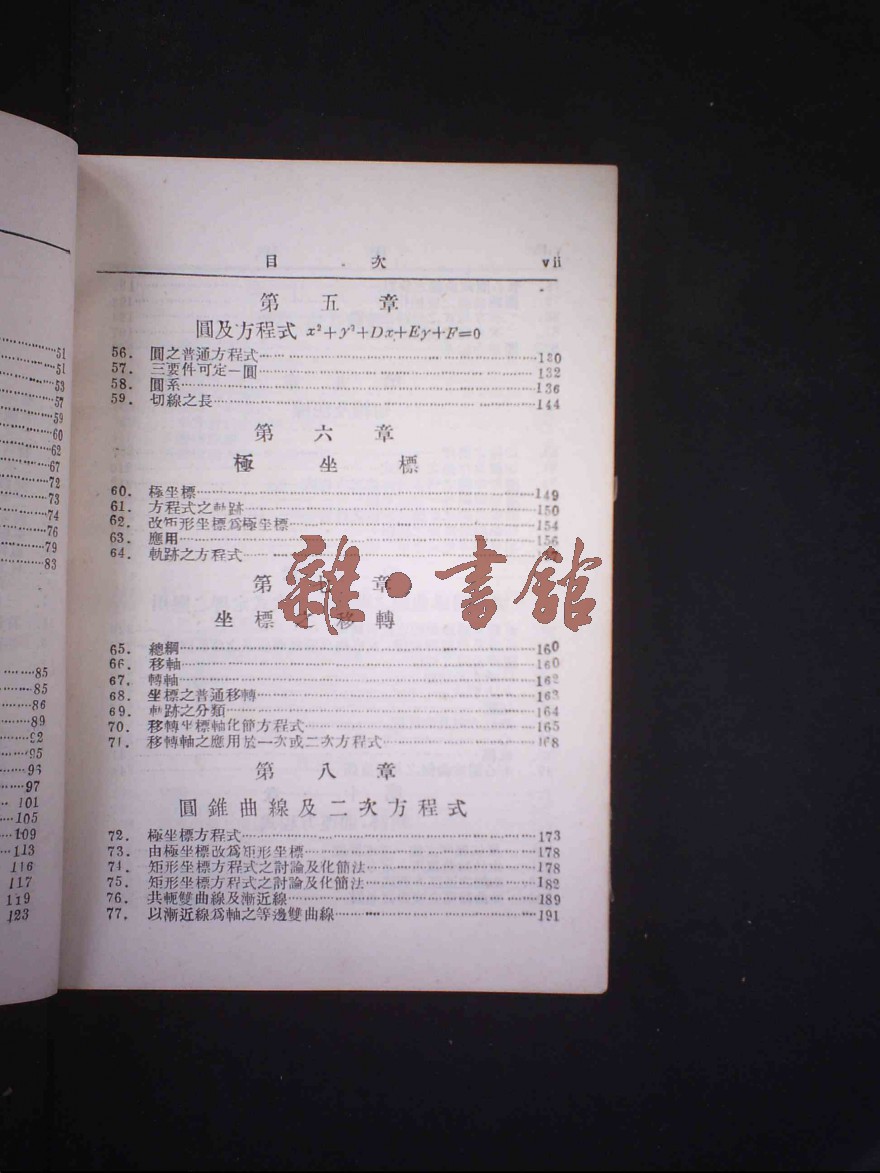 51
51
53
57
59
60
62
67
72
73
74
76
79
83
85
85
86
89
92
95
96
97
101
105
109
113
116
117
119
123
目 次 vii
第 五 章
圓及方程式 x²+y²+Dx+Ey+F=0
56. 圓之普通方程式 130
57. 三要件可定一圓 132
58. 圓系 136
59. 切線之長 144
第 六 章
極 坐 標
60. 極坐標 149
61. 方程式之軌跡 150
62. 改矩形坐標爲極坐標 154
63. 應用 156
64. 軌跡之方程式
雜·書館
第 七 章
坐 標 之 移 轉
65. 總綱 160
66. 移軸 160
67. 轉軸 162
68. 坐標之普通移轉 163
69. 軌跡之分類 164
70. 移轉坐標軸化簡方程式 165
71. 移轉軸之應用於一次或二次方程式 168
第 八 章
圓錐曲線及二次方程式
72. 極坐標方程式 173
73. 由極坐標改爲矩形坐標 178
74. 矩形坐標方程式之討論及化簡法 178
75. 矩形坐標方程式之討論及化簡法 182
76. 共軛雙曲線及漸近線 189
77. 以漸近線爲軸之等邊雙曲線 191